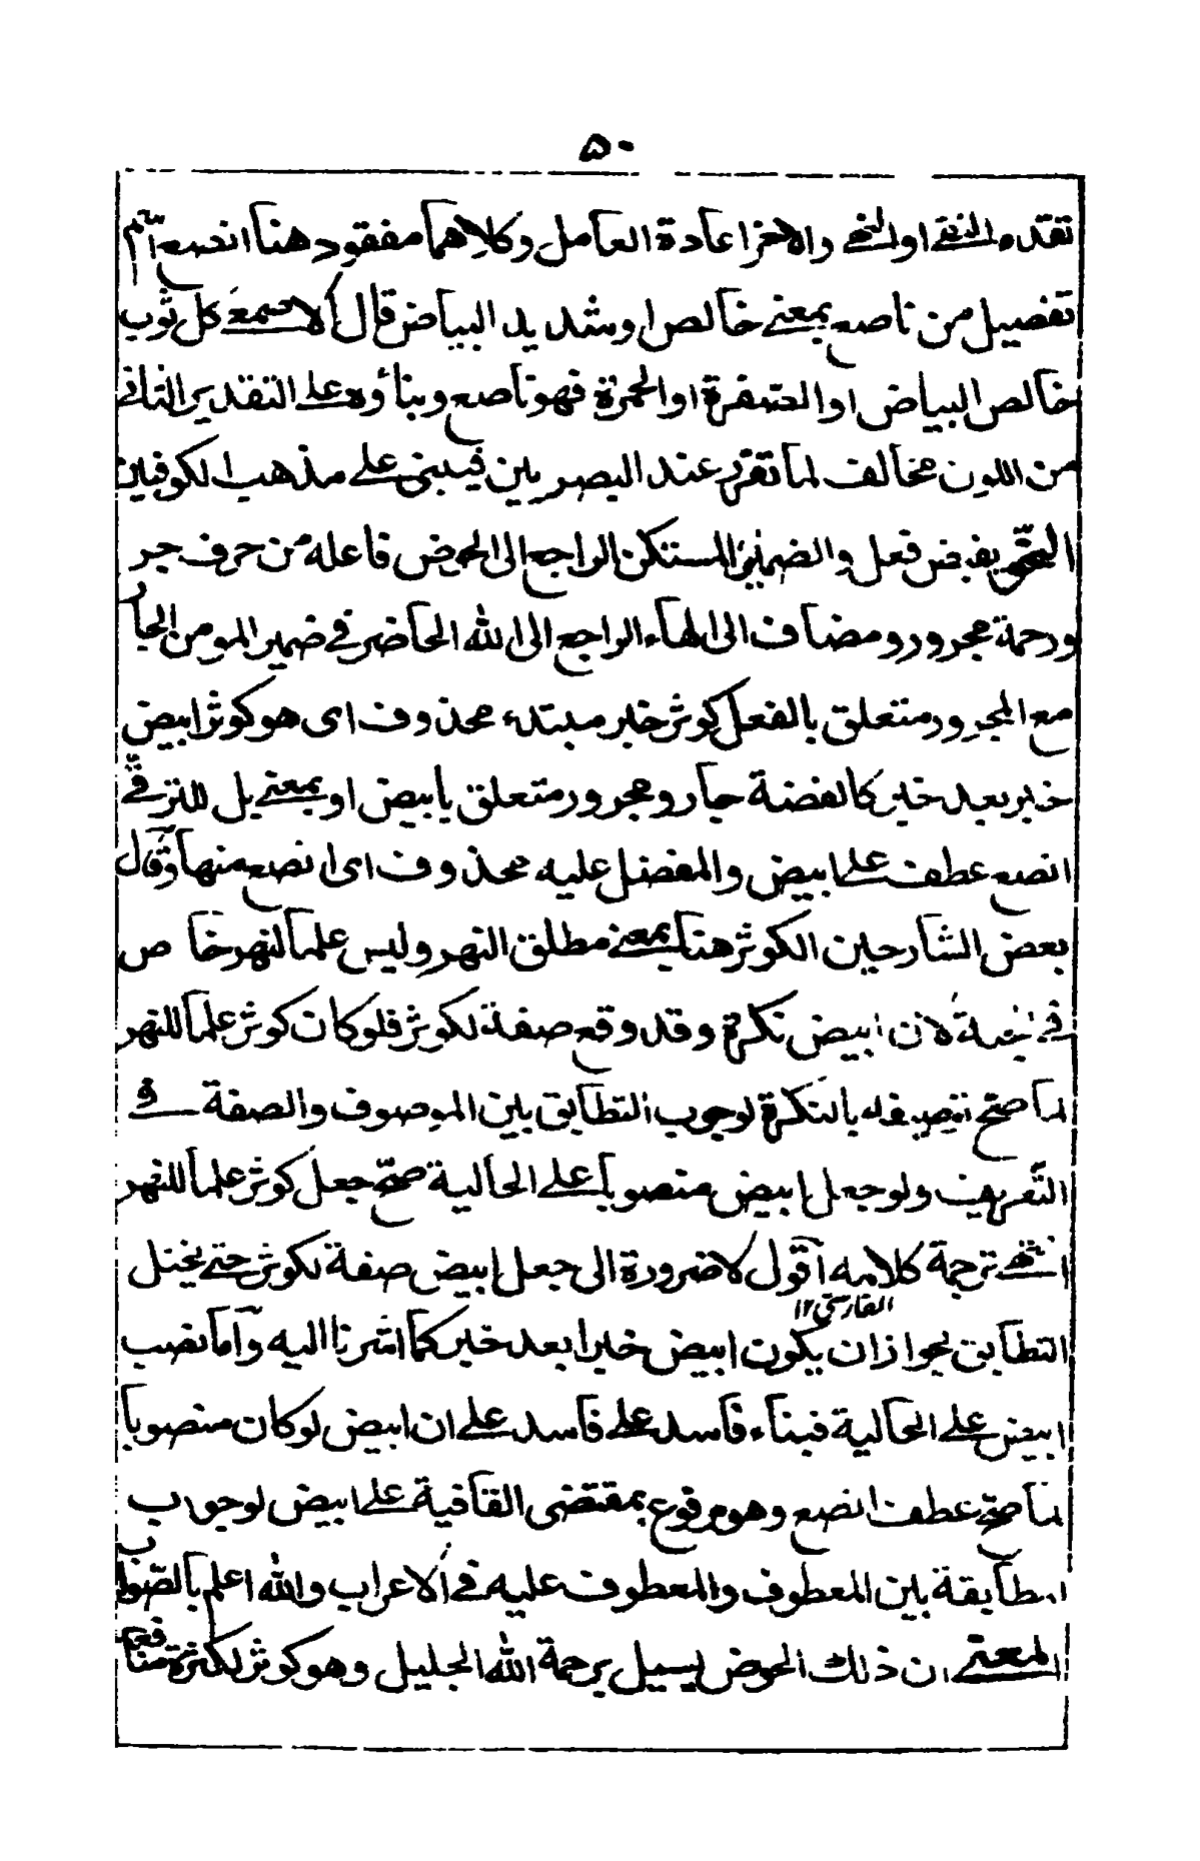 ۵۰
تقدم النفى او النهى والاخر اعادة العامل وكلاهما مفقود هنا انصع اسم
تفضيل من ناصع بمعنى خالص او شديد البياض قال الاصمعى كل ثوب
خالص البياض او الصفرة او الحمرة فهو ناصع وبناؤه على التقدير الثانى
من اللون مخالف لما تقرر عند البصريين فيبنى على مذهب الكوفيين
النحو يفيض فعل والضمير المستكن الراجع الى الحوض فاعله من حرف جر
ورحمة مجرور ومضاف الى الهاء الراجع الى الله الحاضر فى ضمير المومن الجار
مع المجرور متعلق بالفعل كوثر خبر مبتدء محذوف اى هو كوثر ابيض
خبر بعد خبر كالفضة جار ومجرور متعلق بابيض او بمعنى بل للترقى
انصع عطف على ابيض والمفضل عليه محذوف اى انصع منها وقال
بعض الشارحين الكوثر هنا بمعنى مطلق النهر وليس علما لنهر خاص
فى الجنة لان ابيض نكرة وقد وقع صفة لكوثر فلو كان كوثر علما للنهر
لما صح توصيفه بالنكرة لوجوب التطابق بين الموصوف والصفة فى
التعريف ولو جعل ابيض منصوبا على الحالية صح جعل كوثر علما للنهر
انتهى ترجمة كلامه اقول لا ضرورة الى جعل ابيض صفة لكوثر حتى يختل
الفارسى ۱۲
التطابق لجواز ان يكون ابيض خبرا بعد خبر كما اشرنا اليه واما نصب
ابيض على الحالية فبناء فاسد على فاسد على ان ابيض لو كان منصوبا
لما صح عطف انصع وهو مرفوع بمقتضى القافية على ابيض لوجوب
المطابقة بين المعطوف والمعطوف عليه فى الاعراب والله اعلم بالصواب
المعنى ان ذلك الحوض يسيل برحمة الله الجليل وهو كوثر لكثرة منافعه